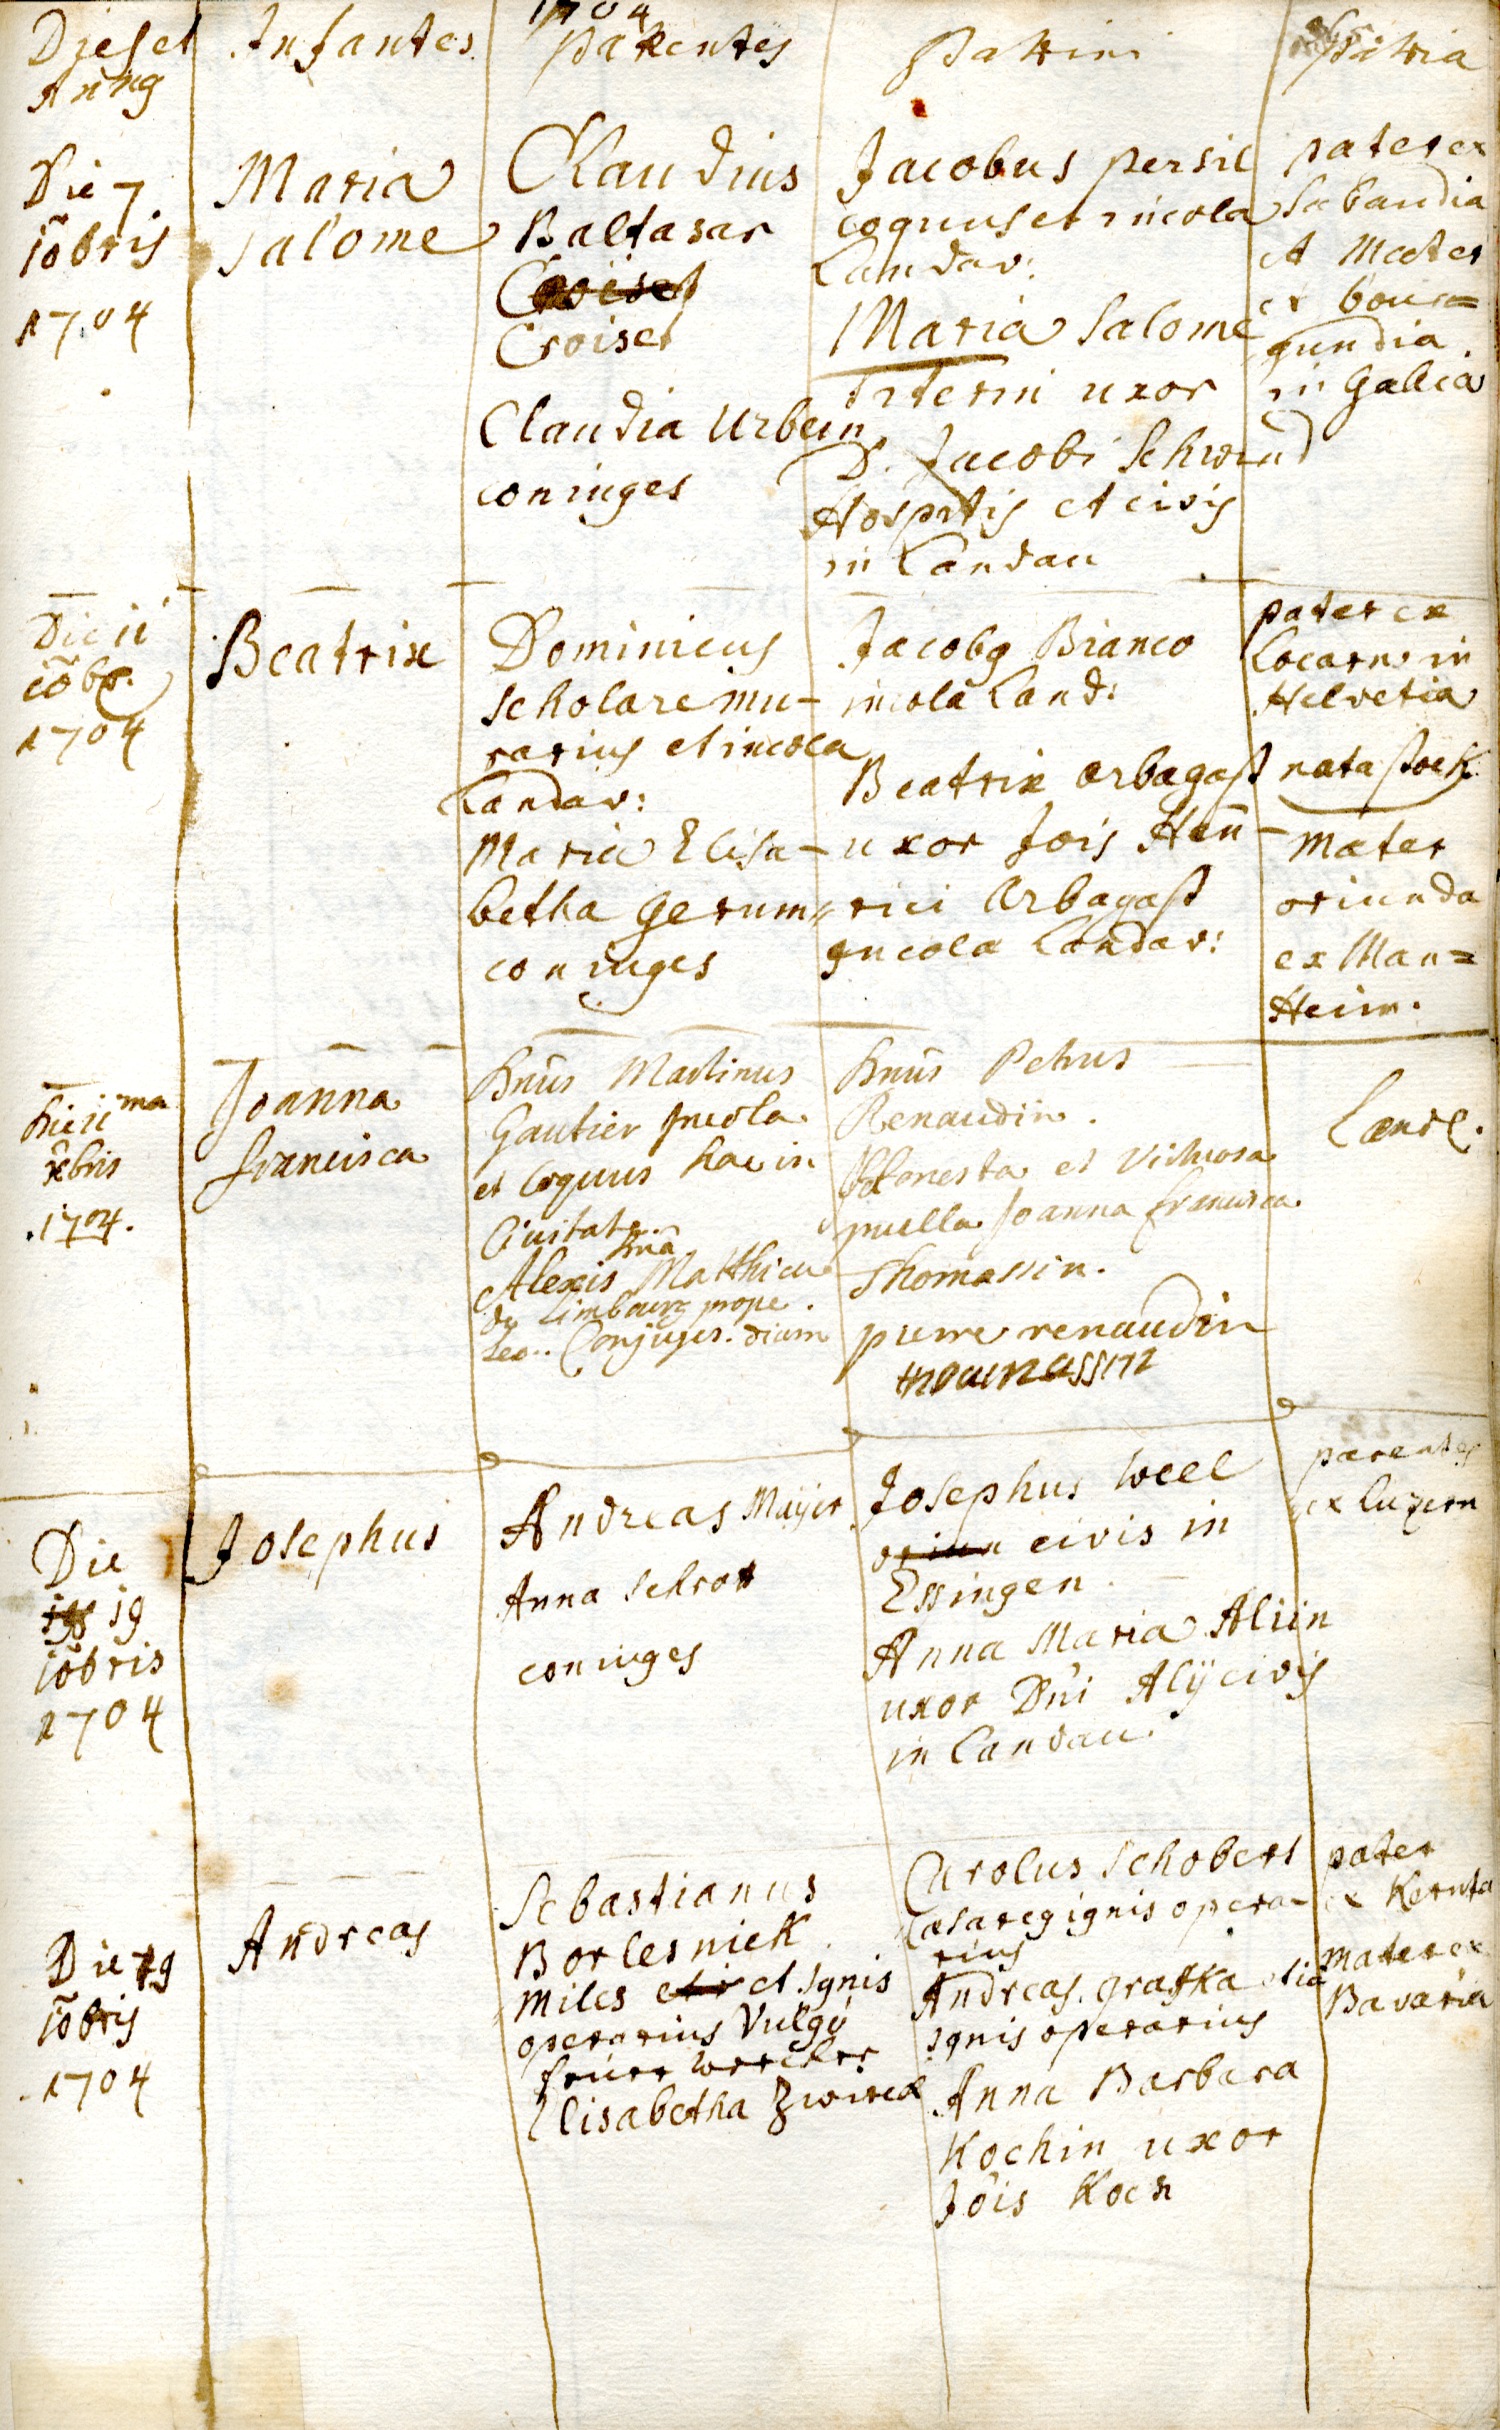 1704
Dies et
Annq
Infantes
parentes
Patrini
patria
Die 7
10bris
1704
Maria
Salome
Claudius
Baltasar
Croiset
Croiset
Claudia Urbein
coniuges
Jacobus persil
coquus et incola
Landav:
Maria Salome
uxor
D. Jacobi Schwend
Hospitis et civis
in Landau
pater ex
Sabaudia
et Mater
ex bour=
gundia
in Gallia
Die 11
10br.
1704
Beatrix
Dominicus
Scholare mu-
rarius et incola
Landav:
Maria Elisa-
betha Gerum
coniuges
Jacobq Bianco
incola Land:
Beatrix Arbagast
uxor Jois Hen̄-
rici Arbagast
Incola Landav:
pater ex
Locarno in
Helvetia
nata stock
Mater
oriunda
ex Man=
Heim.
Die 11ma
xbris
1704.
Joanna
francisca
Dnūs Martinus
Gautier Incola
et Coquus hac in
Civitate
Dnā
Alexis Matthieu
de Limbourg prope
Leo.. Conjuges. dium
Dnūs Petrus
Renaudin.
Honesta et Virtuosa
puella Joanna francisca
Thomassin.
pierre renaudin
thoumassin
Land.
Die
19
10bris
1704
Josephus
Andreas Mayer
Anna Schrot
coniuges
Josephus Weel
oriun civis in
Essingen
Anna Maria Aliin
uxor Dn̄i Alÿ civis
in Landau
parentes
ex Luzern
Die 19
10bris
1704
Andreas
Sebastianus
Borlesnick
Miles et Ignis
operarius Vulgò
feüer wercker
Elisabetha Zwirel
Carolus Schobert
Cæsareq ignis opera-
rius
Andreas grafka etiā
Ignis operarius
Anna Barbara
Kochin uxor
Jōis Koch
pater
ex Kernta
Mater ex
Bavaria